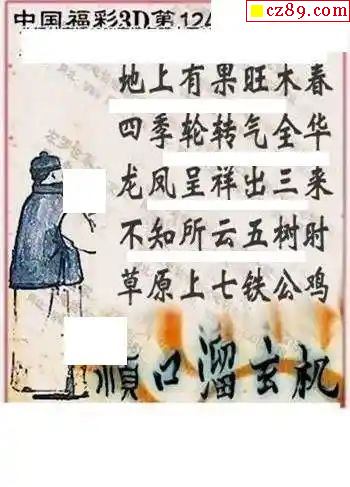 中国福彩3D第124
cz89.com
地上有果旺木春
四季轮转气全华
龙凤呈祥出三来
不知所云五树时
草原上七铁公鸡
顺口溜玄机